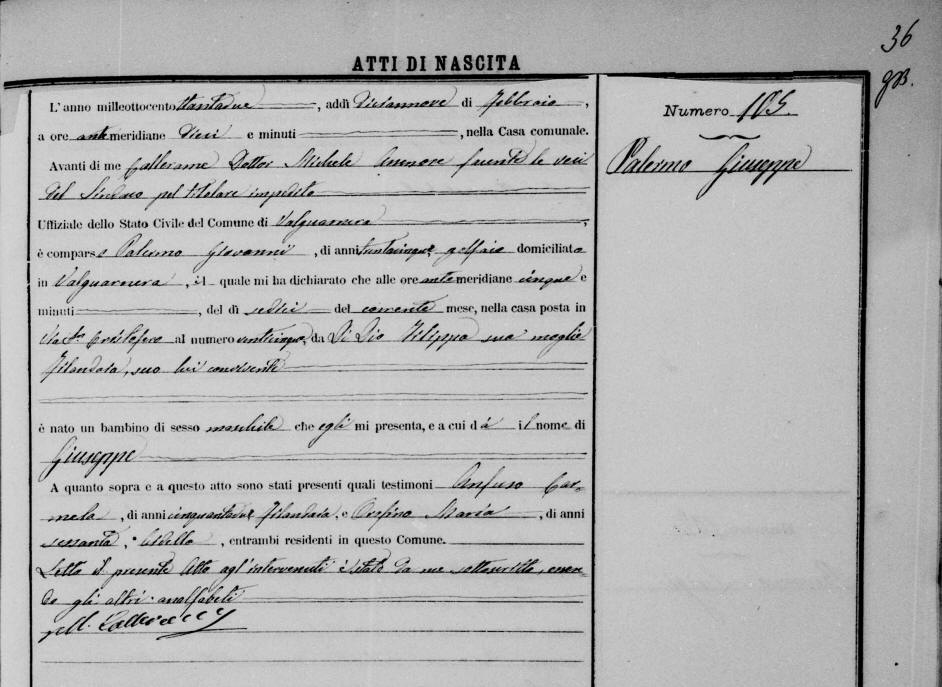 36
ATTI DI NASCITA
Numero 105.
Palermo Giuseppe
L'anno milleottocento ttantadue, addì diciannove di Febbraio,
a ore antemeridiane dieci e minuti, nella Casa comunale.
Avanti di me Dottor Michele facente le veci
del Sindaco pel titolare impedito
Uffiziale dello Stato Civile del Comune di Valguarnera,
è comparso Palermo Giovanni, di anni trentacinque, domiciliato
in Valguarnera, il quale mi ha dichiarato che alle ore antemeridiane cinque e
minuti, del dì sedici del corrente mese, nella casa posta in
al numero venticinque, da Di Dio Filippa sua moglie
filandaia, seco lui convivente
è nato un bambino di sesso maschile che egli mi presenta, e a cui dà il nome di
Giuseppe
A quanto sopra e a questo atto sono stati presenti quali testimoni Anfuso Car-
mela, di anni cinquantadue, filandaia, e Maria, di anni
sessanta, entrambi residenti in questo Comune.
Letto il presente Atto agl'intervenuti è stato da me sottoscritto, essen-
do gli altri analfabeti